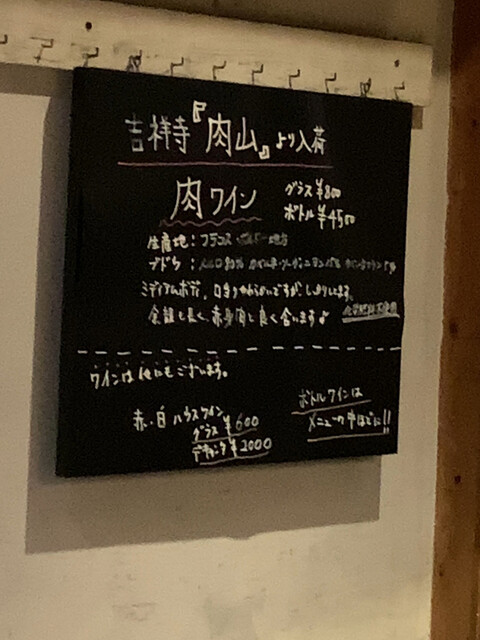 吉祥寺『肉山』より入荷
肉ワイン
グラス ¥800
ボトル ¥4500
生産地：フランス ボルドー地方
ブドウ：メルロ
ミディアムボディ。口当りやわらかいですが、しっかりしてます。
余韻も長く、赤身肉と良く合います♪
ワインは他にもございます。
赤・白 ハウスワイン
グラス ¥600
デキャンタ ¥2000
ボトルワインは
メニューの中ほどに!!